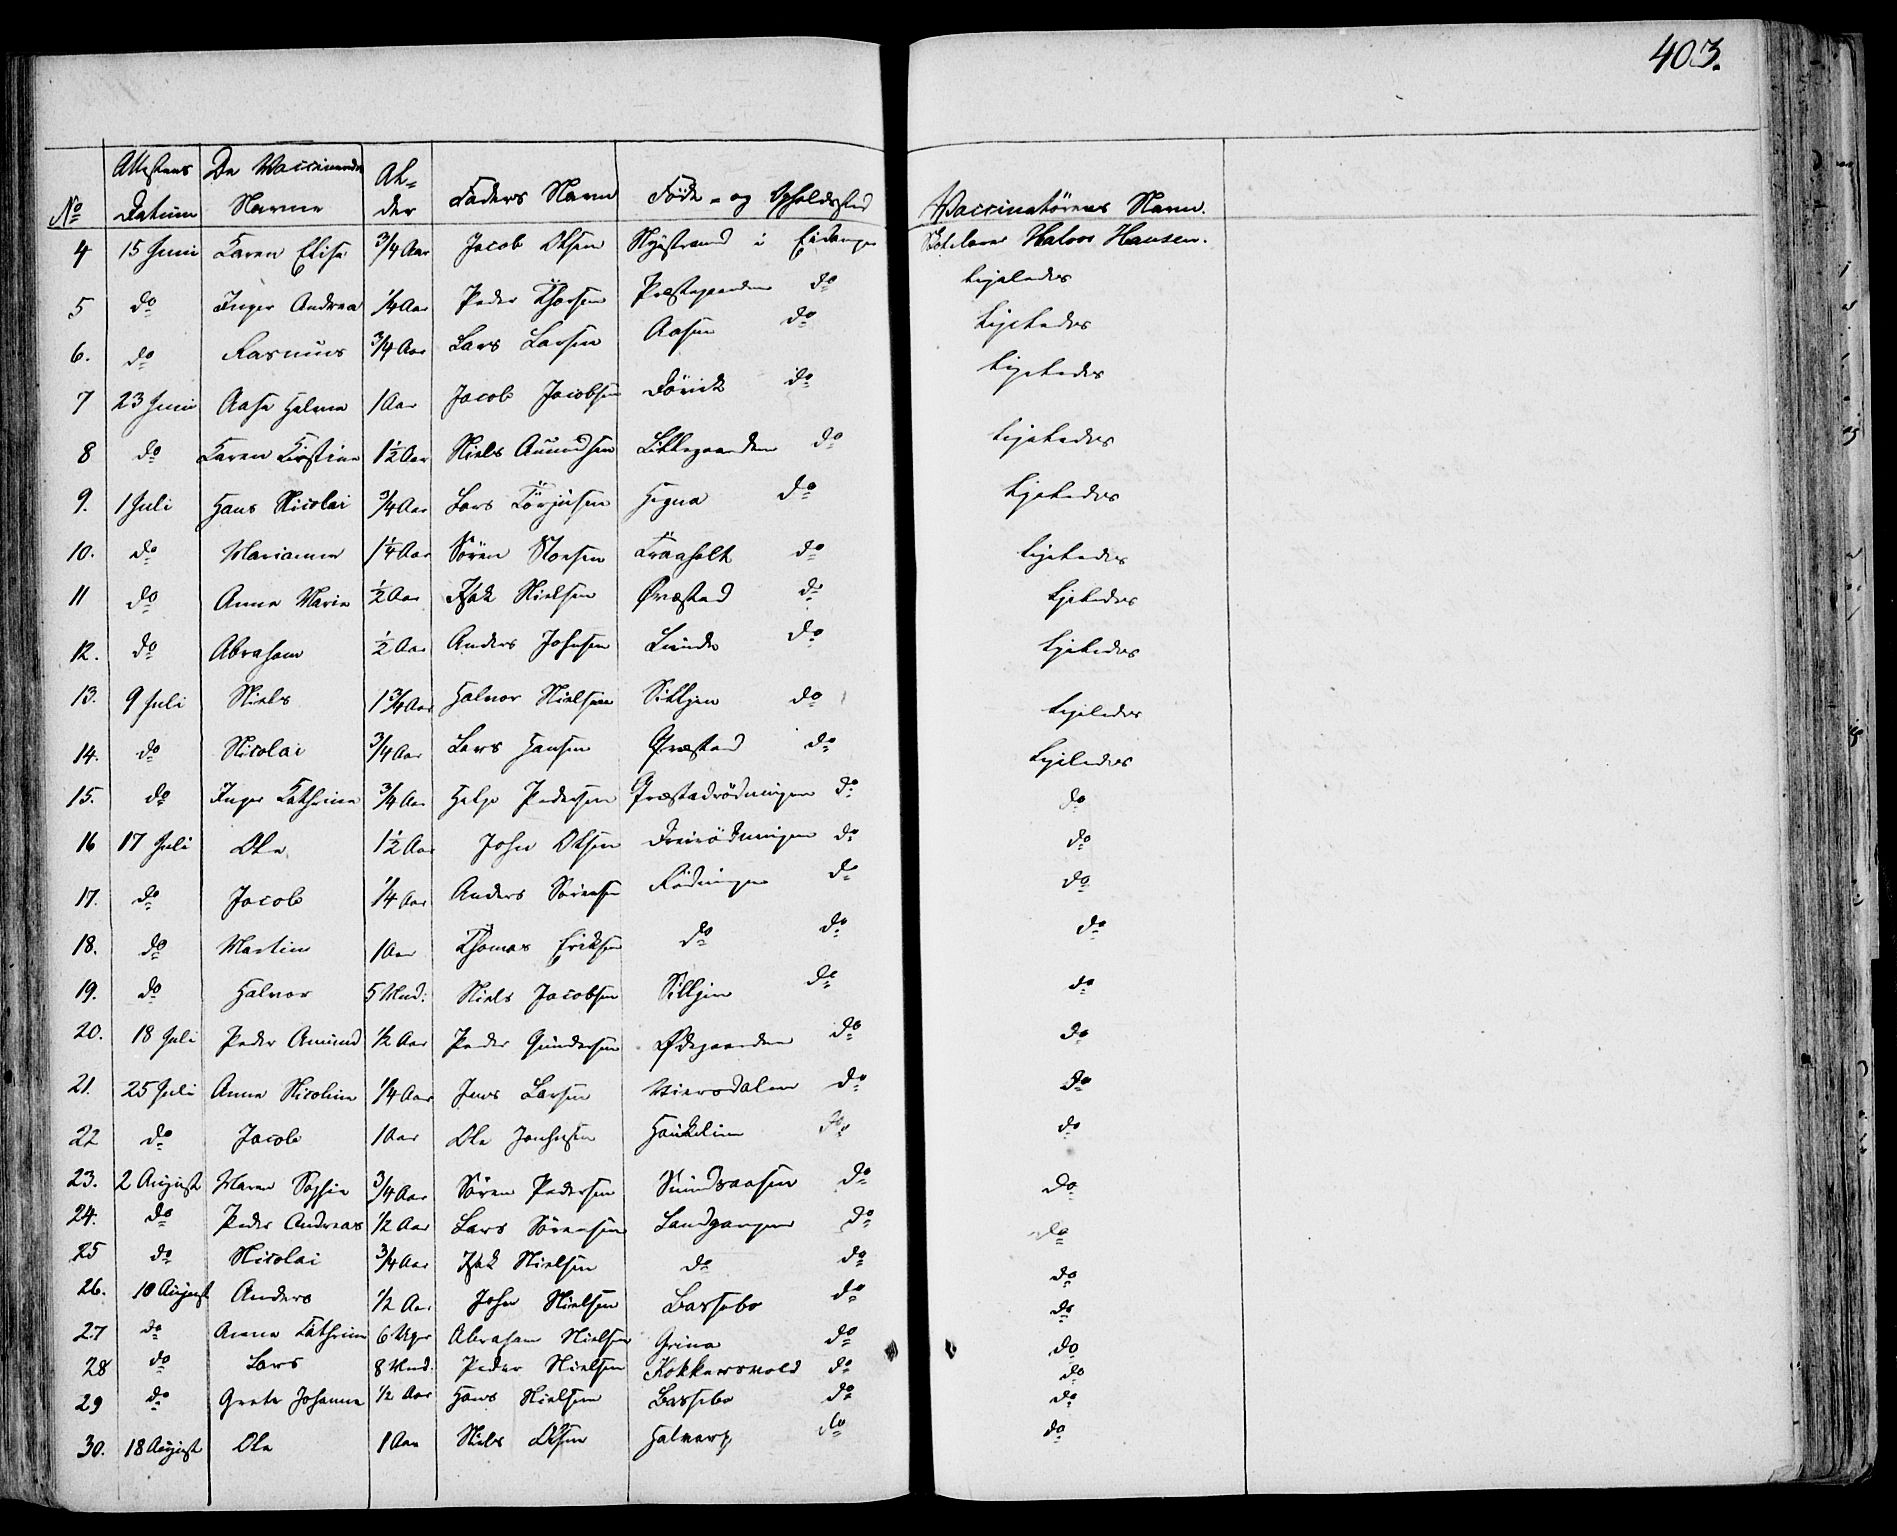 403.
No Attestens Datum De Vaccineredes Navne Alder Faders Navn Føde- og Opholdssted Vaccinatørens Navn.
4 15 Juni Karen Elise 3/4 Aar Jacob Olsen Nystrand i Eidanger Halvor Hansen.
5 do Inger Andrea 1/4 Aar Peder Thorsen Præstegaarden do Ligeledes
6. do Rasmus 3/4 Aar Lars Larsen Aasen do Ligeledes
7 23 Juni Aase Helene 1 Aar Jacob Jacobsen Dörvik do Ligeledes
8 do Karen Kirstine 1½ Aar Niels Amundsen Lillegaarden do Ligeledes
9. 1 Juli Hans Nicolai 3/4 Aar Lars Törjusen Hegna do Ligeledes
10. do Marianne 1¼ Aar Sören Traaholt do Ligeledes
11 do Anne Marie ½ Aar Isak Nielsen Øvrestad do Ligeledes
12. do Abraham ½ Aar Anders Johnsen Lunde do Ligeledes
13. 9 Juli Niels 1 3/4 Aar Halvor Nielsen Silljen do Ligeledes
14. do Nicolai 3/4 Aar Lars Hansen do Ligeledes
15. do Inger Kathrine 3/4 Aar Helge Pedersen do do
16 17 Juli Ole 1½ Aar John Olsen do do
17. do Jacob 1/4 Aar Anders Sörensen Rødningen do do
18. do Martin 1 Aar Thomas Eriksen do do do
19. do Halvor 5 Mnd: Niels Jacobsen Silljen do do
20. 18 Juli Peder Amund 1/2 Aar Peder Gundersen Ødegaarden do do
21. 25 Juli Anne Nicoline 1/4 Aar Jens Larsen Viersdalen do do
22 do Jacob 1 Aar Ole Haukelien do do
23. 2 August Maren Sophie 3/4 Aar Sören Pedersen Sundsaasen do do
24. do Peder Andreas 1/2 Aar Lars Sörensen Landgangen do do
25 do Nicolai 3/4 Aar Isak Nielsen do do do
26. 10 August Anders 1/2 Aar John Nielsen Bassebo do do
27 do Anne Kathrine 6 Uger Abraham Nielsen Grina do do
28 do Lars 8 Mnd. Peder Nielsen Kokkersvold do do
29 do Grete Johanne 1/2 Aar Hans Nielsen Bassebo do do
30. 18 August Ole 1 Aar Niels Olsen do do